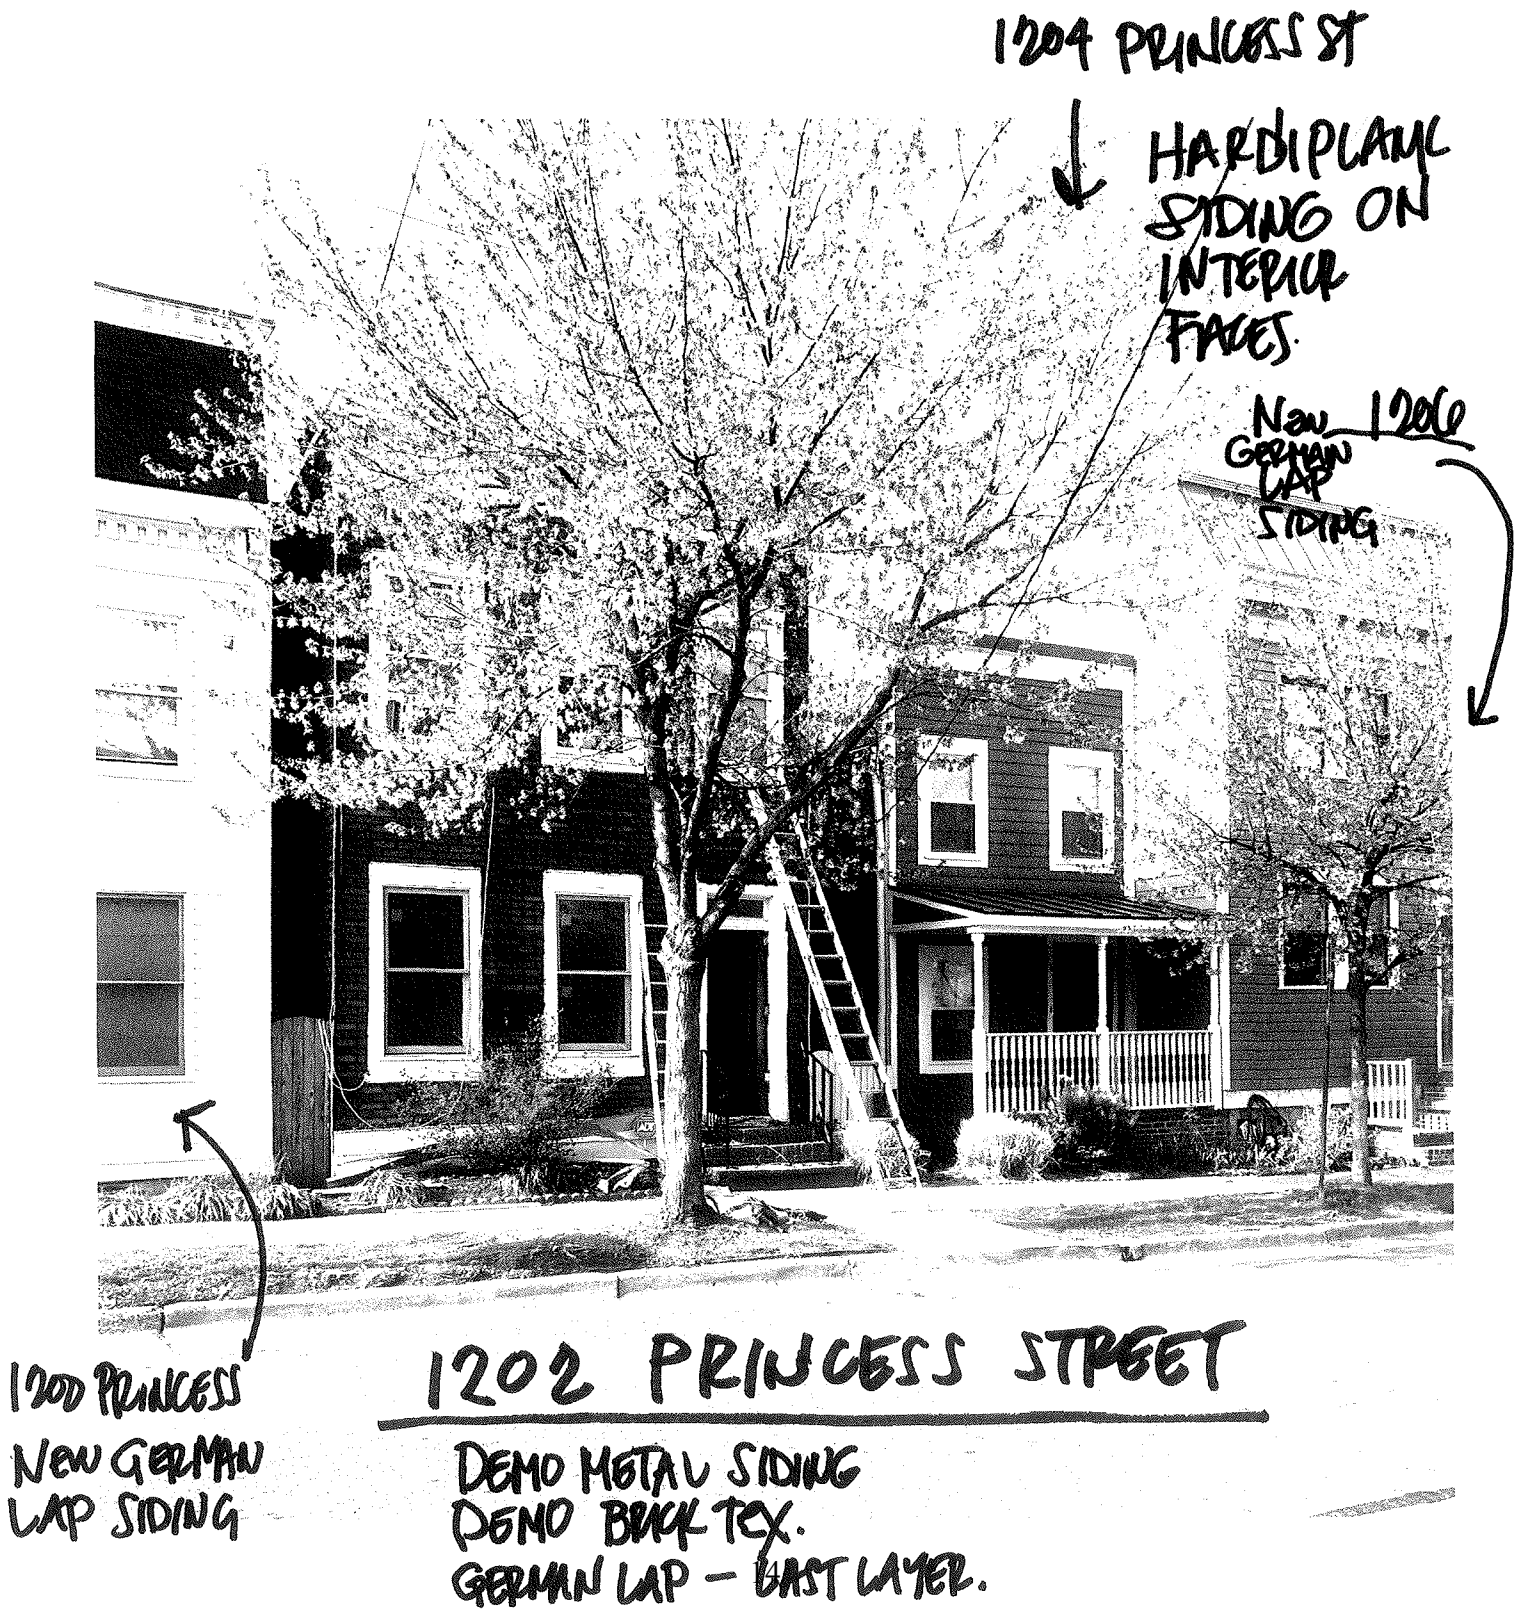 1204 PRINCESS ST
HARDIPLANK
SIDING ON
INTERIOR
FACES.
New 1206
GERMAN
LAP
SIDING
1200 PRINCESS
NEW GERMAN
LAP SIDING
1202 PRINCESS STREET
DEMO METAL SIDING
DEMO BRICK TEX.
GERMAN LAP - LAST LAYER.
14